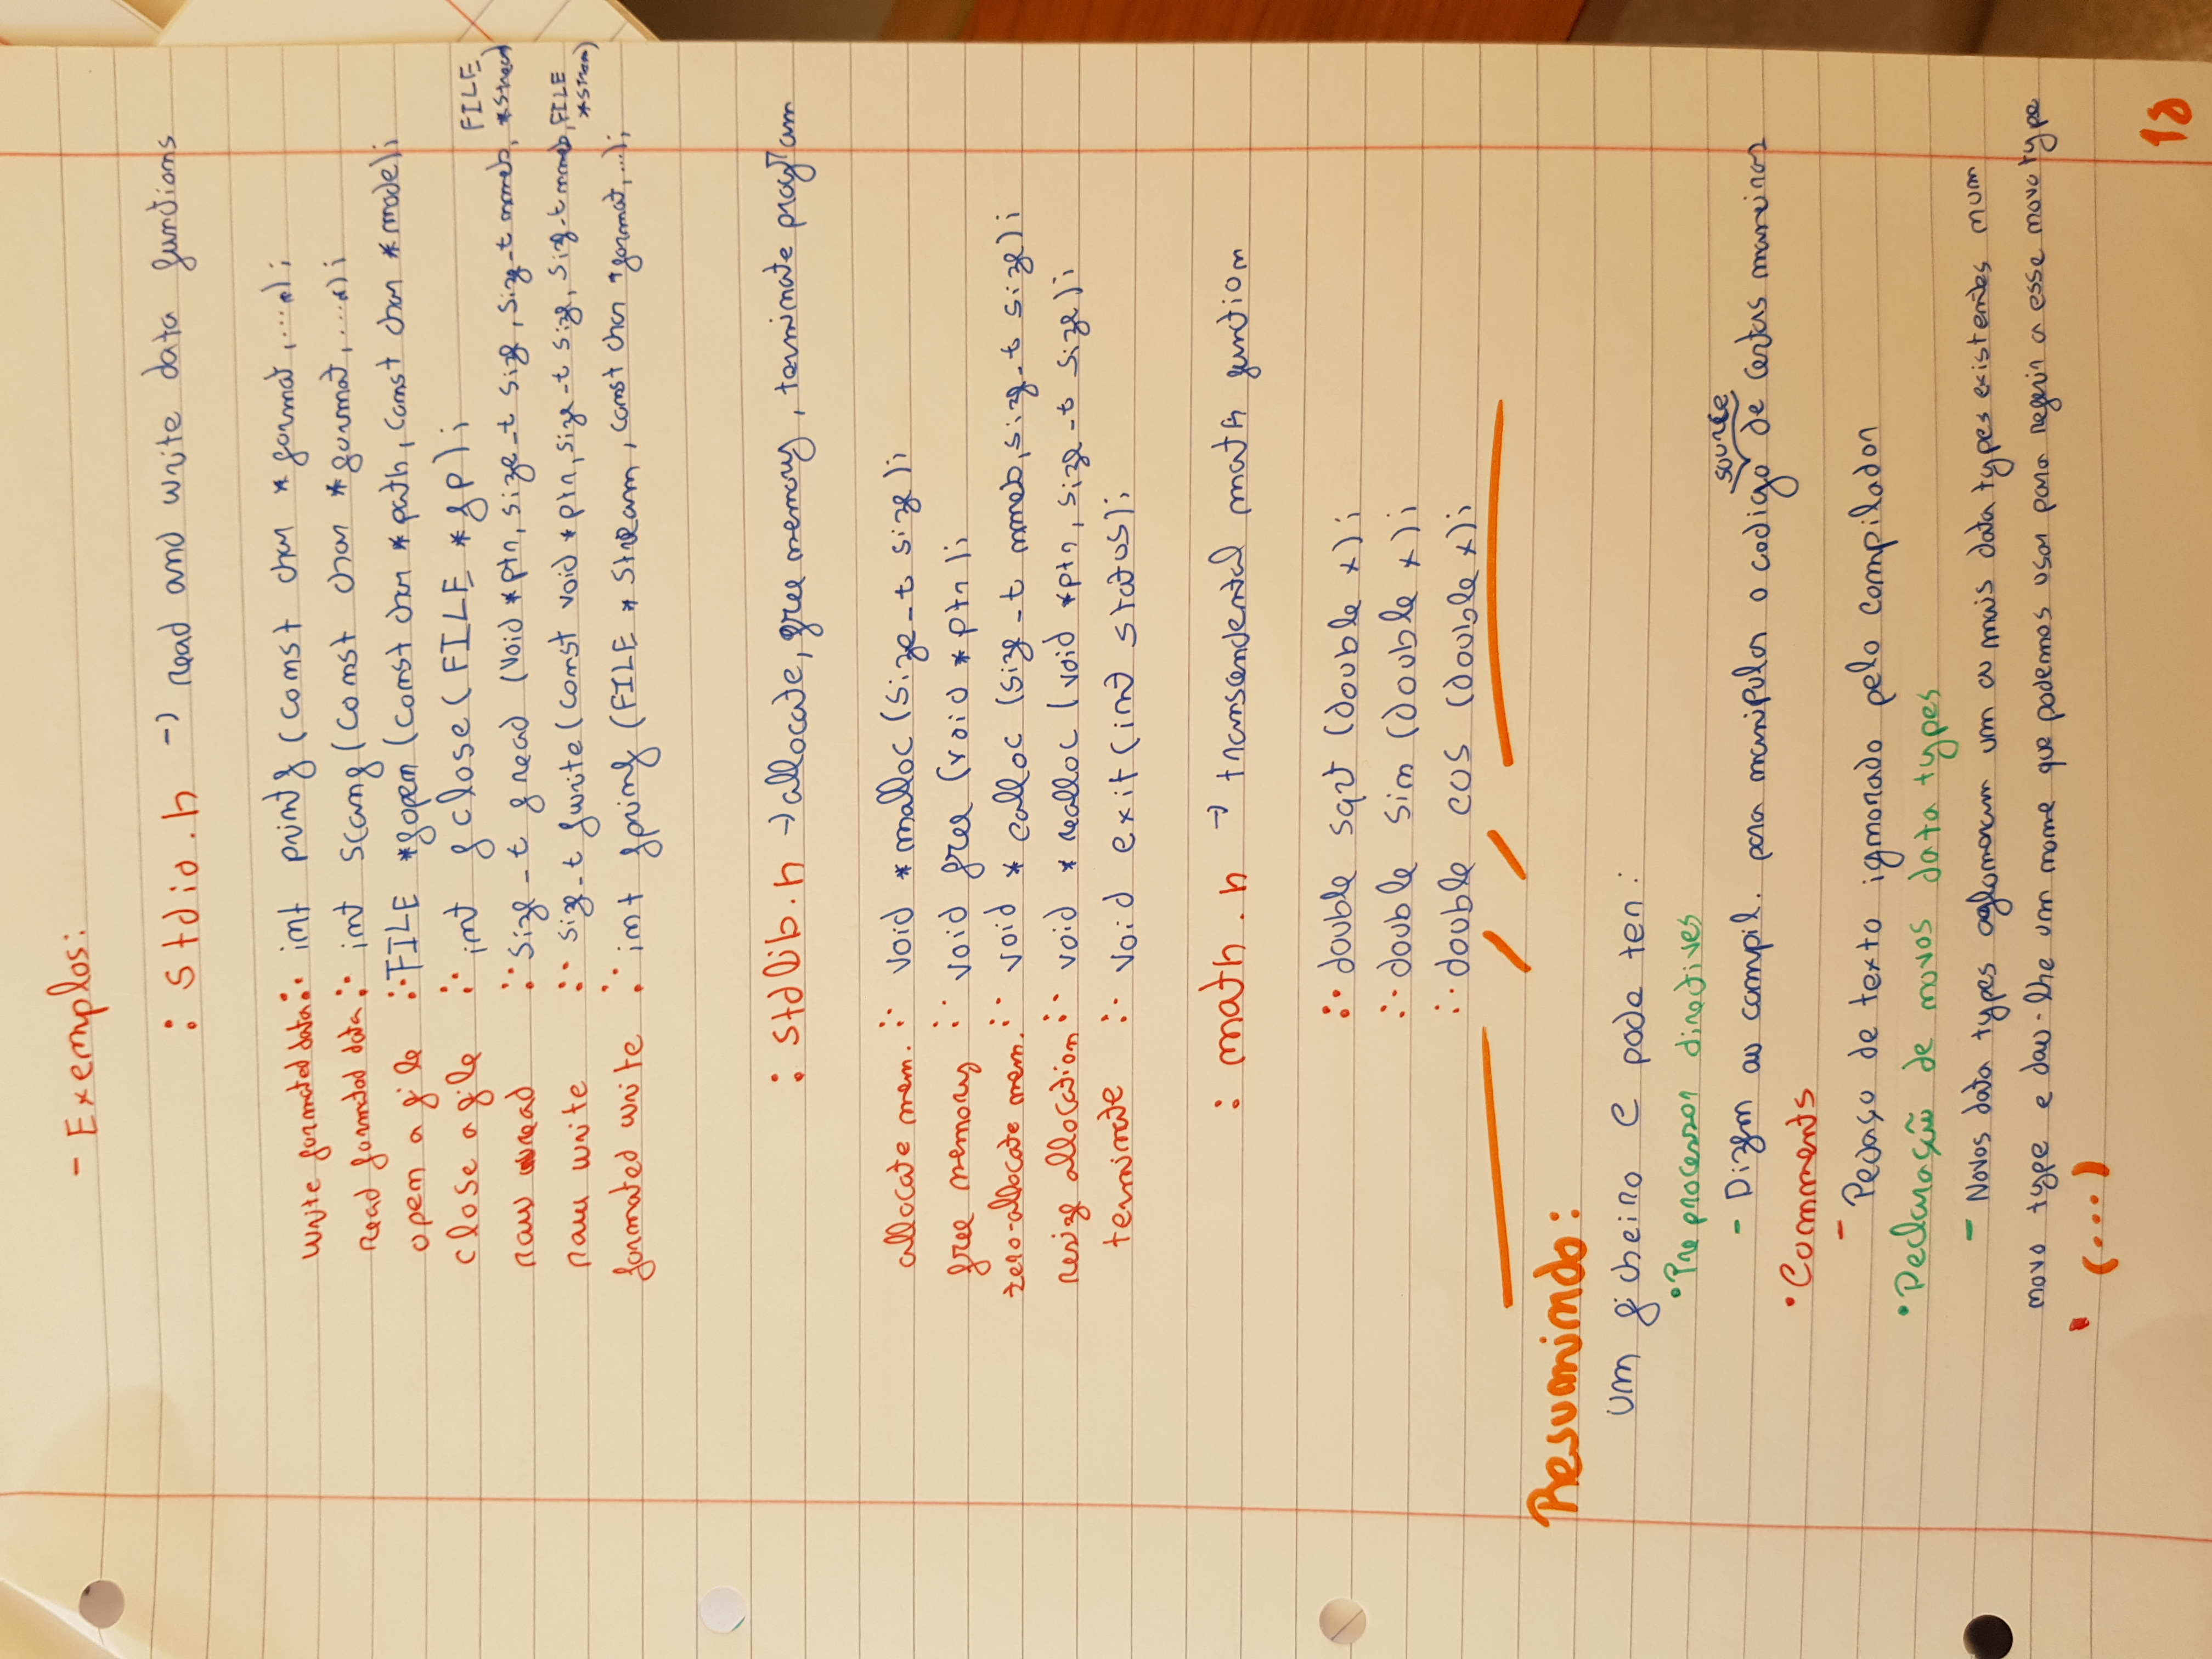 - Exemplos:
: stdio.h -> read and write data functions
write formated data ∴ int printf (const char *format, ....);
Read formated data ∴ int scanf (const char *format, ....);
open a file ∴ FILE *fopen (const char *path, const char *mode);
close a file ∴ int fclose (FILE *fp);
raw read ∴ size_t fread (void *ptr, size_t size, size_t nmeb, FILE *stream)
raw write ∴ size_t fwrite (const void *ptr, size_t size, size_t nmeb, FILE *stream)
formated write ∴ int fprinf (FILE *stream, const char *format, ...);
: stdlib.h -> allocate, free memory, terminate program
allocate mem. ∴ void *malloc (size_t size);
free memory ∴ void free (void *ptr);
zero-allocate mem. ∴ void *calloc (size_t nmeb, size_t size);
resize allocation ∴ void *realloc (void *ptr, size_t size);
terminate ∴ void exit (int status);
: math.h -> transcendental math function
∴ double sqrt (double x);
∴ double sin (double x);
∴ double cos (double x);
Resumindo:
um ficheiro C pode ter:
• Preprocessor directives
- Dizem ao compil. para manipular o codigo source de certas maneiras
• Comments
- Pedaço de texto ignorado pelo compilador
• Declaração de novos data types
- Novos data types aglomeram um ou mais data types existentes num
novo type e dao-lhe um nome que podemos usar para referir a esse novo type
• (...)
18